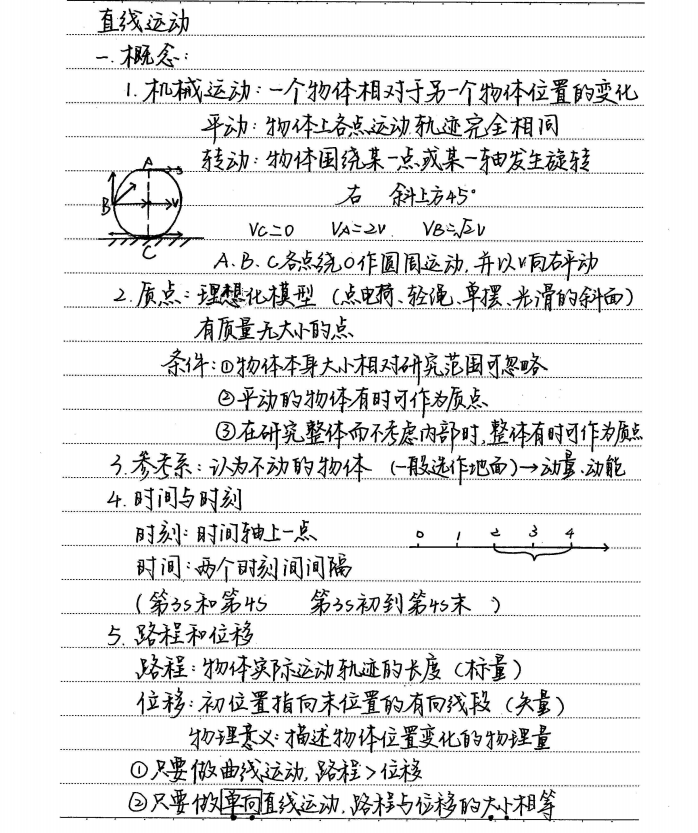 直线运动
一.概念:
1.机械运动:一个物体相对于另一个物体位置的变化
平动:物体上各点运动轨迹完全相同
转动:物体围绕某一点或某一轴发生旋转
A
B
V
C
右 斜上方45°
Vc=0 VA=2V VB=√2V
A、B、C各点绕O作圆周运动,并以V向右平动
2.质点:理想化模型(点电荷、轻绳、单摆、光滑的斜面)
有质量无大小的点
条件:①物体本身大小相对研究范围可忽略
②平动的物体有时可作为质点
③在研究整体而不考虑内部时,整体有时可作为质点
3.参考系:认为不动的物体 (一般选作地面)→动量、动能
4.时间与时刻
时刻:时间轴上一点
0 1 2 3 4
时间:两个时刻间间隔
(第3s和第4s 第3s初到第4s末 )
5.路程和位移
路程:物体实际运动轨迹的长度(标量)
位移:初位置指向末位置的有向线段(矢量)
物理意义:描述物体位置变化的物理量
①只要做曲线运动,路程>位移
②只要做单向直线运动,路程与位移的大小相等